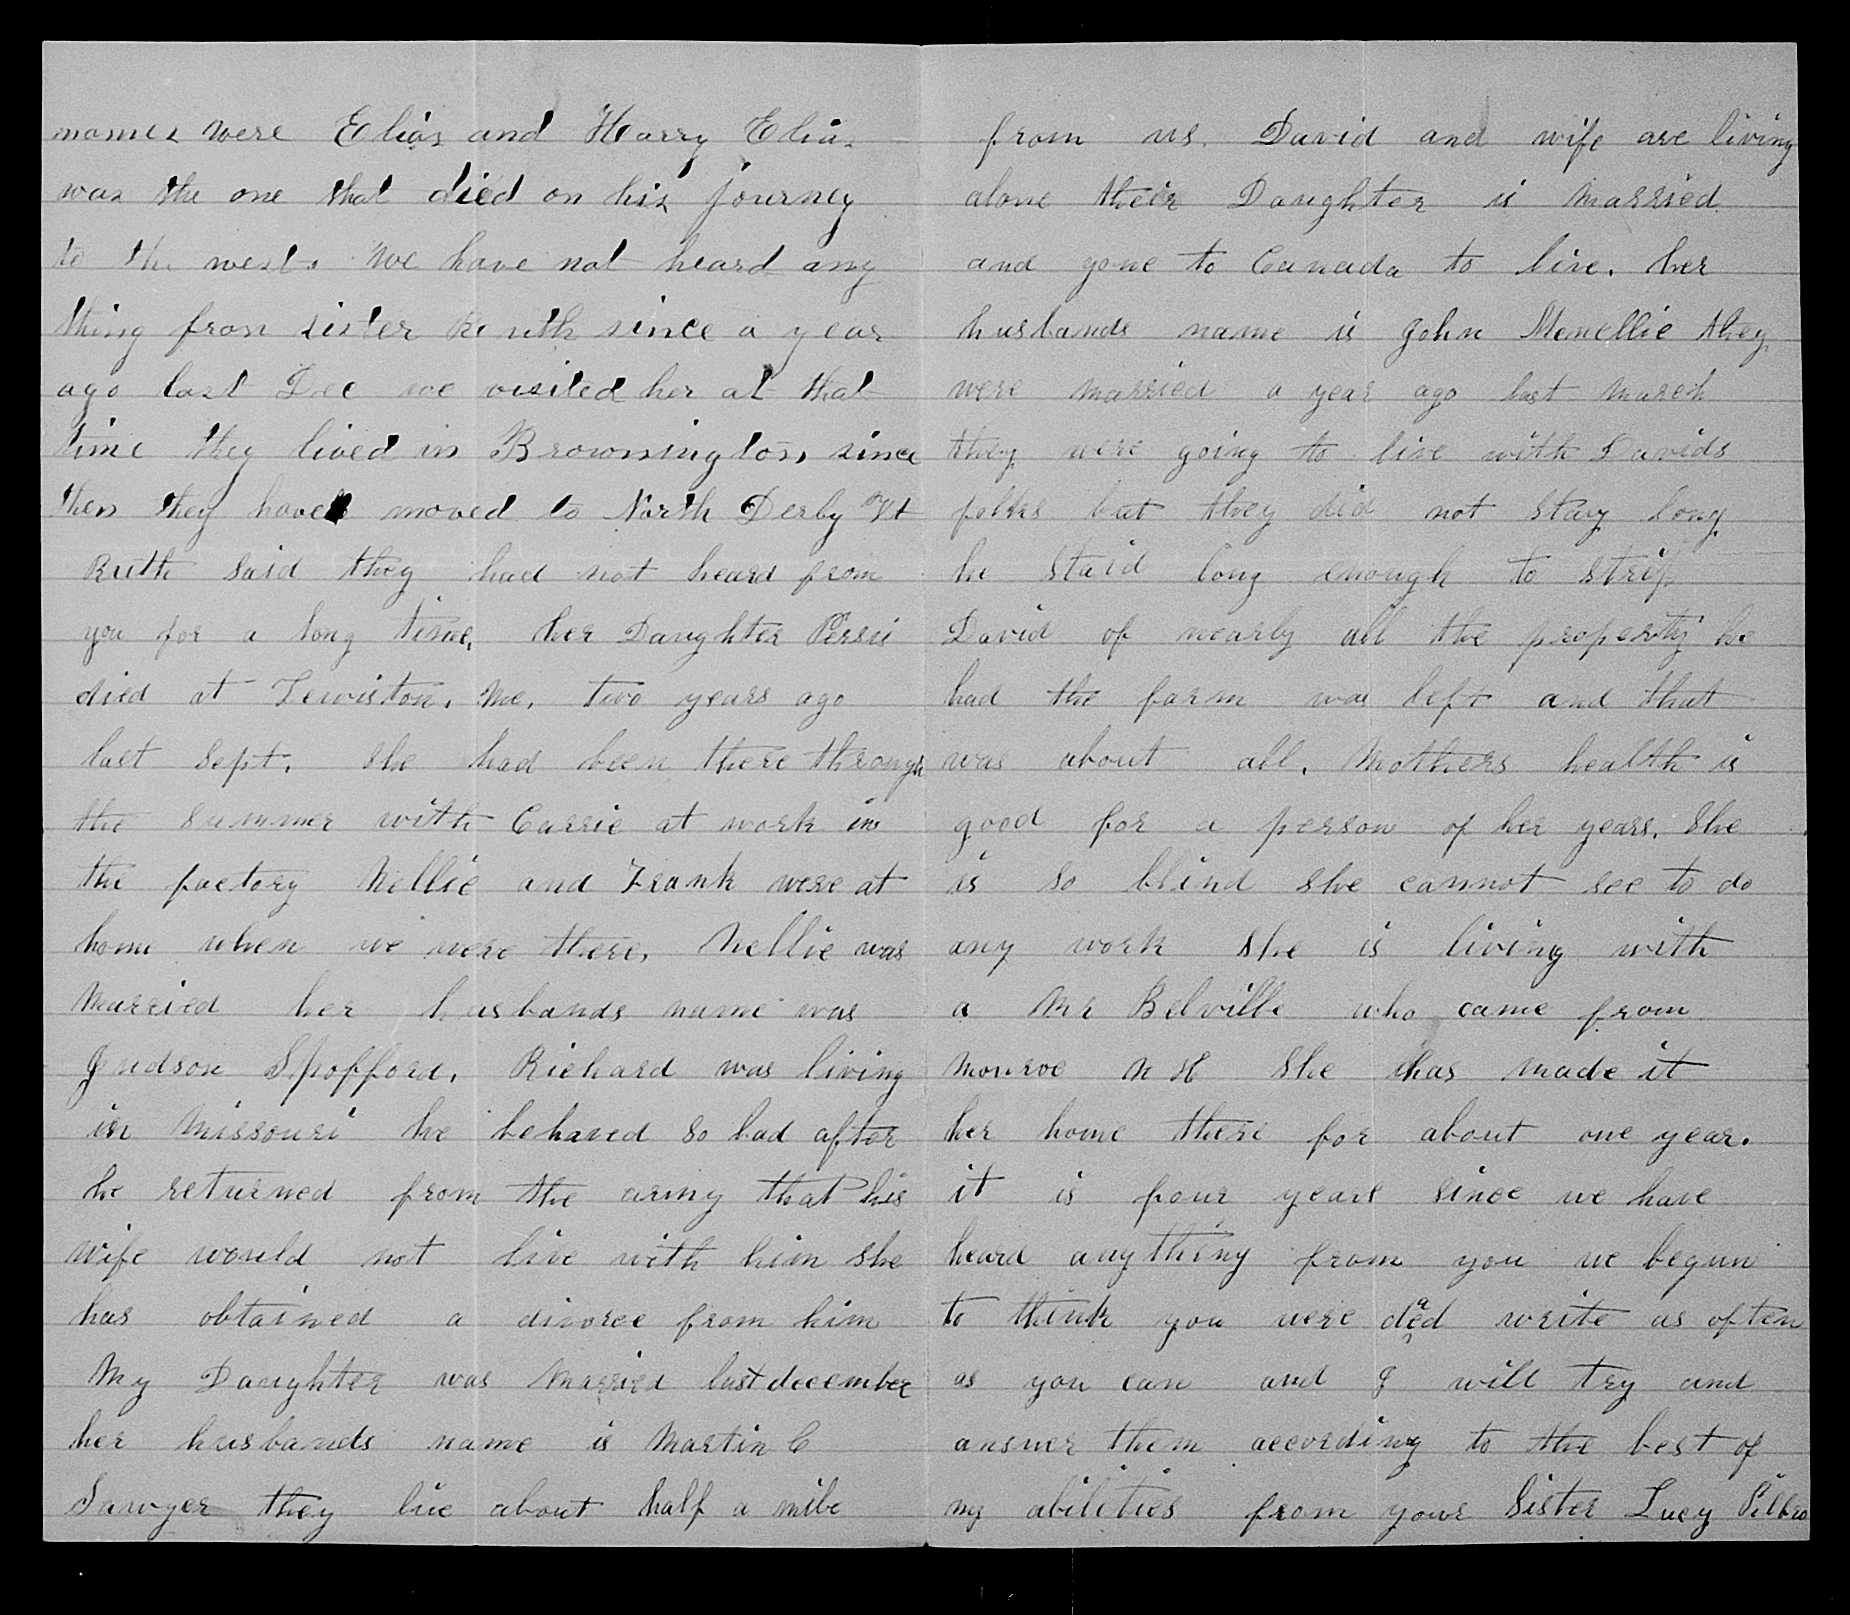 names were Elias and Harry Elias
was the one that died on his journey
to the west. We have not heard any
thing from sister Ruth since a year
ago last Dec we visited her at that
time they lived in Brownington, since
then they have moved to North Derby Vt
Ruth said they had not heard from
you for a long time, her Daughter Persis
died at Lewiston, Me, two years ago
last Sept. she had been there through
the summer with Carrie at work in
the factory Nellie and Frank were at
home when we were there, Nellie was
Married her husbands name was
Judson Spofford, Richard was living
in Missouri he behaved so bad after
he returned from the army that his
wife would not live with him she
has obtained a divorce from him
My Daughter was Married last december
her husbands name is Martin C
Sawyer they live about half a mile
from us. David and wife are living
alone their Daughter is Married
and gone to Canada to live. her
husbands name is John they
were married a year ago last march
they were going to live with Davids
folks but they did not stay long
he staid long enough to strip
David of nearly all the property he
had the farm was left and that
was about all. Mothers health is
good for a person of her years. She
is so blind she cannot see to do
any work she is living with
a Mr Belville who came from
Monroe N H She has made it
her home there for about one year.
it is four years since we have
heard anything from you we begun
to think you were dead write as often
as you can and I will try and
answer them according to the best of
my abilities from your Sister Lucy